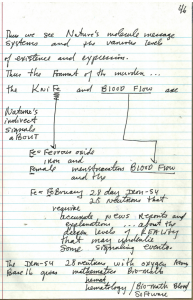 46
Thus we see Nature's molecule message
systems and the various levels
of existence and expression.
Thus the format of the murder ...
the KNiFe and BLOOD FLOW are
Nature's
indirect
signals
aBOUT
Fe = Ferrous oxide
iron and
Female menstruation BLOOD FLOW
and the
Fe = February 28 day
28 neutrons that
require
accurate news reports and
explanations ... about the
death level FERtility
that may
Some signaling events.
The 28 neutrons with oxygen
Base 16 gives mathematics Bio-math
hemat
hematology / Bio-math Blood
Software